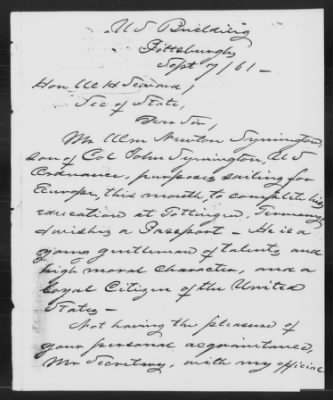 US Building
Pittsburgh
Sept 7/61 -
Hon W H Seward,
Sec of State,
Dear Sir,
Mr Wm Newton Symington,
son of Col John Symington, US
Ordnance, purposes sailing for
Europe, this month, to complete his
education at Göttingen, Germany
& wishes a Passport - He is a
young gentleman of talents and
high moral character, and a
Loyal Citizen of the United
States -
Not having the pleasure of
your personal acquaintance,
Mr Secretary, with my official